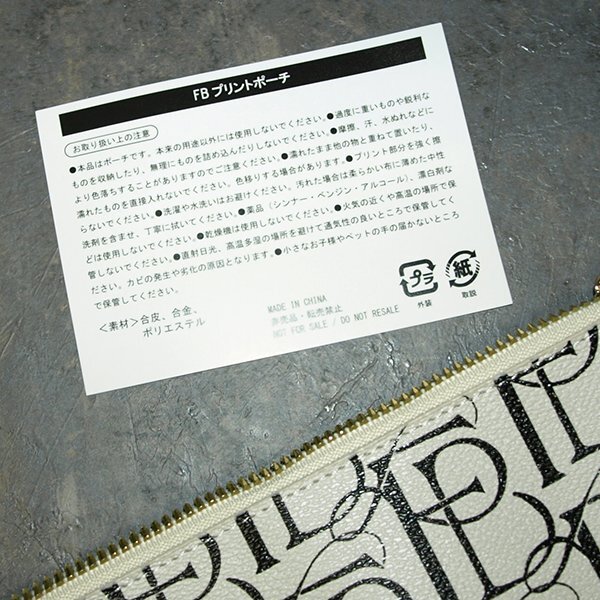 FBプリントポーチ
お取り扱い上の注意
●本品はポーチです。本来の用途以外には使用しないでください。●過度に重いものや鋭利な
ものを収納したり、無理にものを詰め込んだりしないでください。●摩擦、汗、水ぬれなどに
より色落ちすることがありますのでご注意ください。●濡れたまま他の物と重ねて置いたり、
濡れたものを直接入れないでください。色移りする場合があります。●プリント部分を強く擦
らないでください。●洗濯や水洗いはお避けください。汚れた場合は柔らかい布に薄めた中性
洗剤を含ませ、丁寧に拭いてください。●薬品（シンナー・ベンジン・アルコール）、漂白剤な
どは使用しないでください。●乾燥機は使用しないでください。●火気の近くや高温の場所で保
管しないでください。●直射日光、高温多湿の場所を避けて通気性の良いところで保管してく
ださい。カビの発生や劣化の原因となります。●小さなお子様やペットの手の届かないところ
で保管してください。
＜素材＞合皮、合金、
ポリエステル
MADE IN CHINA
非売品・転売禁止
NOT FOR SALE / DO NOT RESALE
プラ
外装
紙
取説